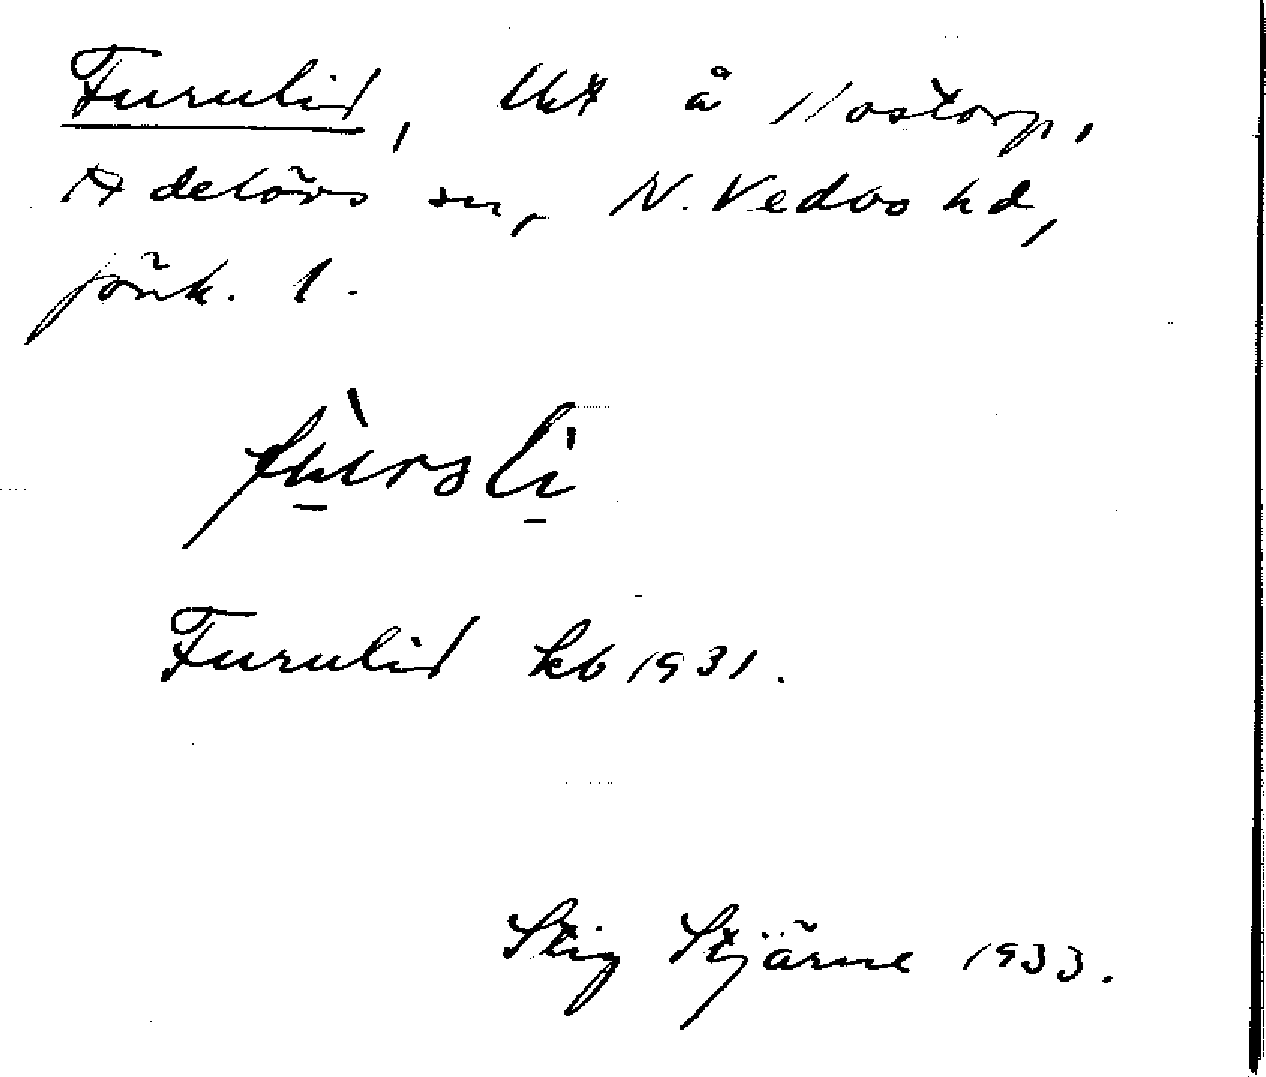 Furulid, lht å Hostorp,
Adelövs sn, N. Vedbo hd,
Jönk. l.
Furulid kb 1931.
Stig Stjärne 1933.